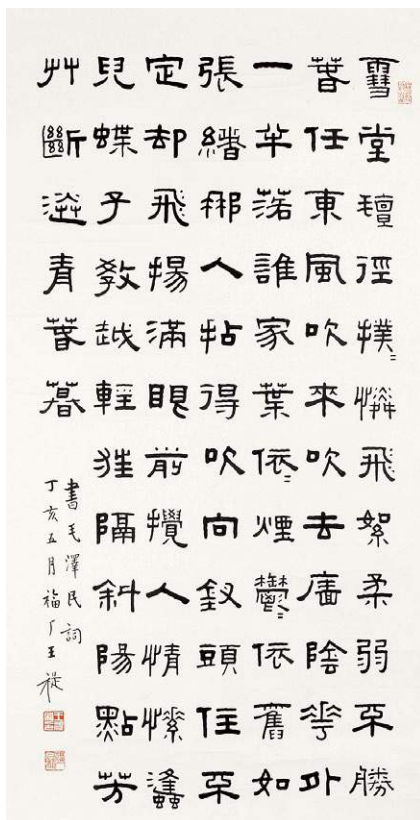 雪堂氊徑撲〻憐飛絮柔弱不勝
春任東風吹來吹去廧陰花外
一半落誰家葉依〻煙鬱〻依舊如
張緒那人拈得吹向釵頭住不
定却飛揚滿眼前攪人情愫蠭
兒蝶子教越輕狂隔斜陽點芳
艸斷送青春暮
書毛澤民詞
丁亥五月福厂王禔